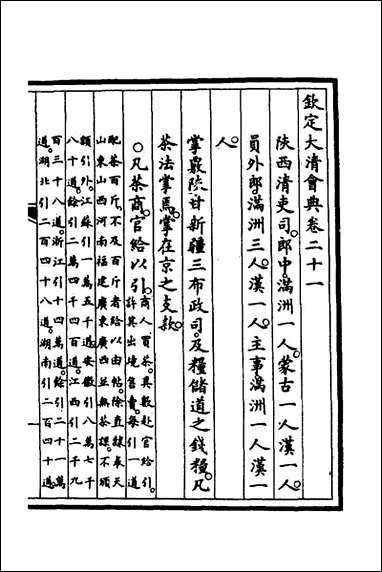 欽定大清會典卷二十一
陜西清吏司。郎中。滿洲一人。蒙古一人。漢一人。
員外郎。滿洲三人。漢一人。主事。滿洲一人。漢一
人。
掌覈陜甘新疆三布政司。及糧儲道之錢糧。凡
茶法掌焉。掌在京之支款。
○凡茶商。官給以引。商人買茶。具數赴官給引。
許其出境售賣。每引一道
配茶百斤。不及百斤者給以由帖。除直隸奉天
山東山西河南福建廣東廣西並無茶課。不頒
額引外。江蘇引一萬五千道。安徽引八萬七千
八十道。餘引二萬四千四百道。江西引二千九
百三十八道。浙江引十四萬道。餘引二十一萬
道。湖北引二百四十八道。湖南引二百四十道